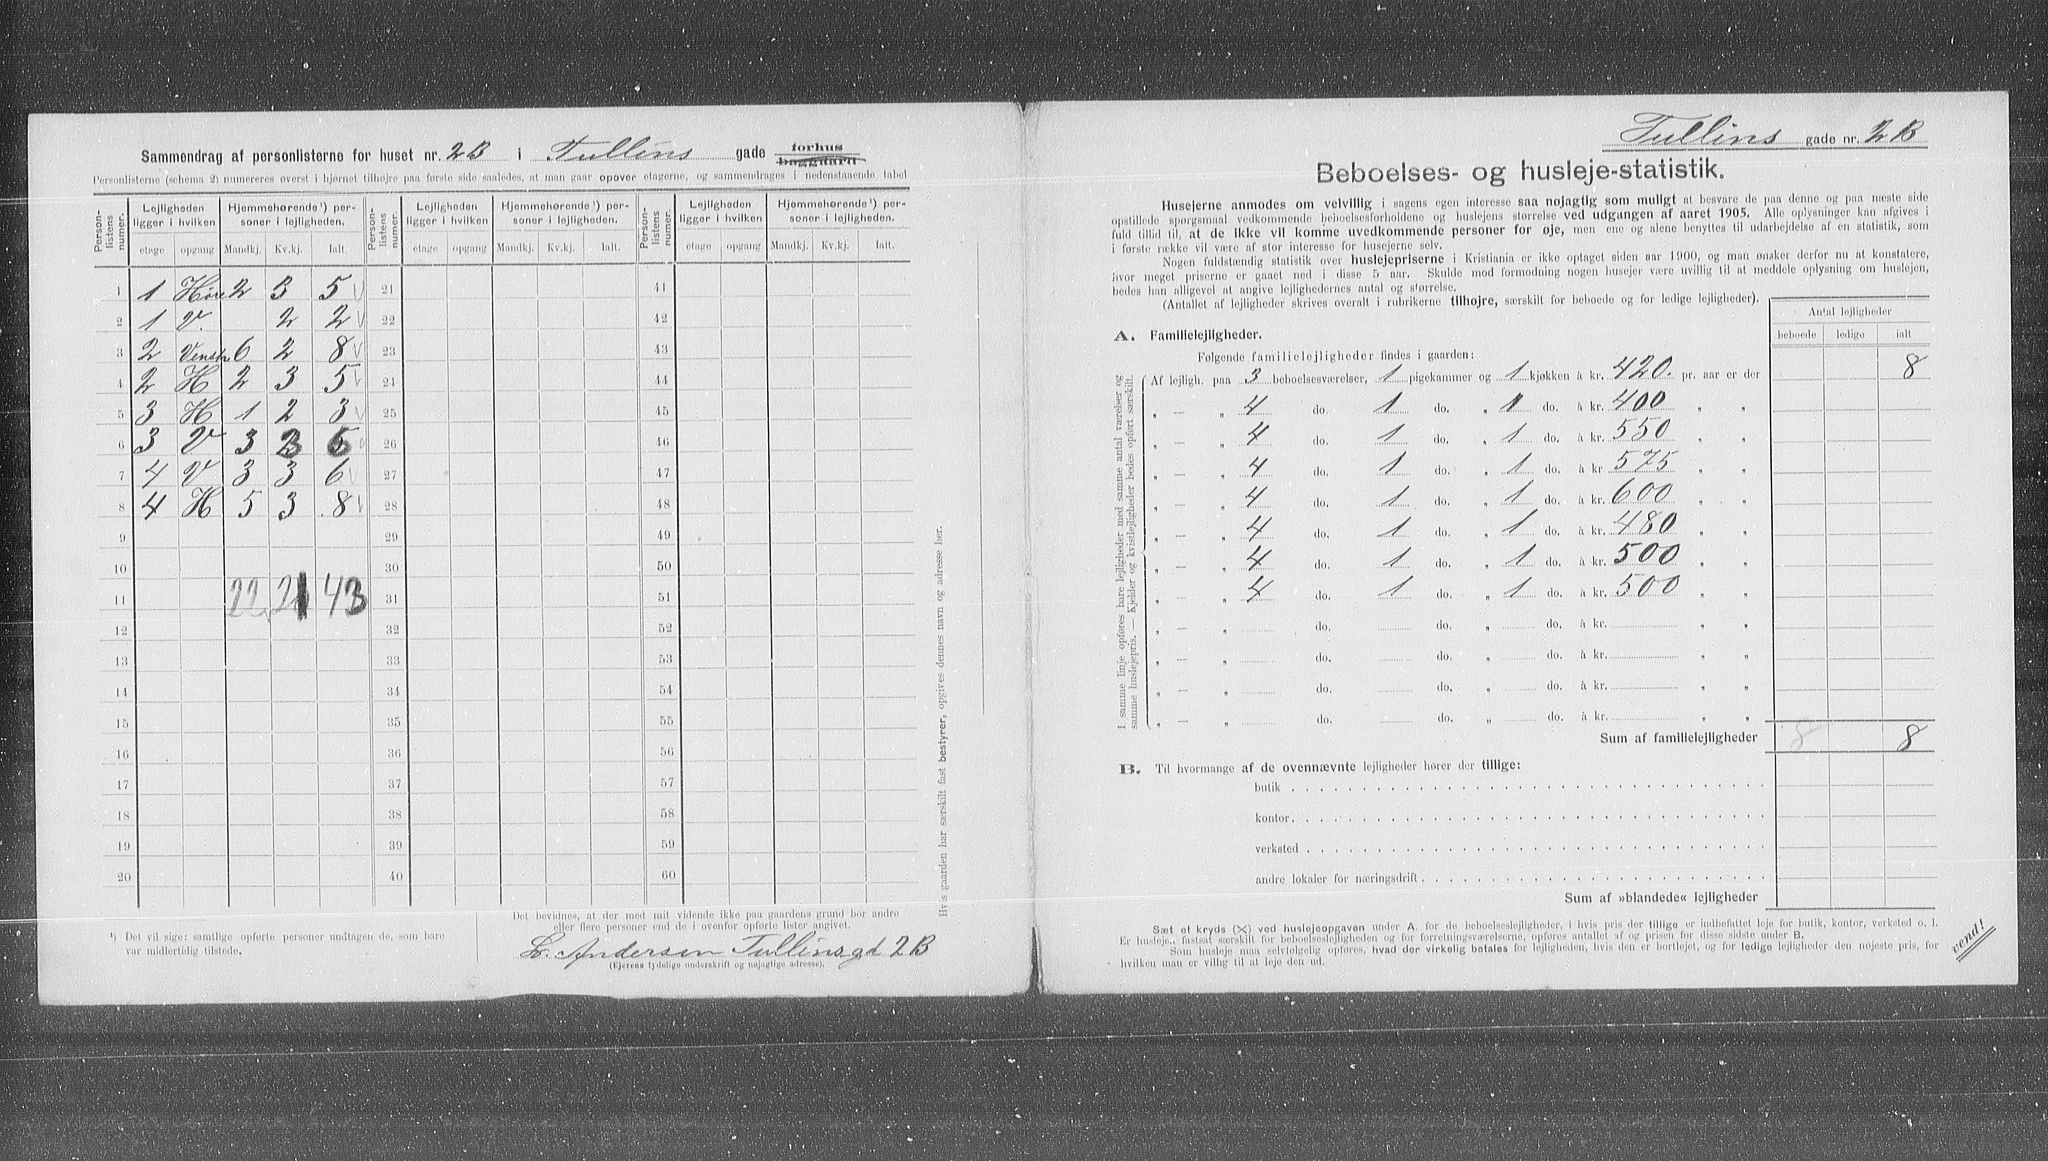 Sammendrag af personlisterne for huset nr. 2B i Tullins gade forhus baggaard
Personlisterne (schema 2) numereres øverst i hjørnet tilhøjre paa første side saaledes, at man gaar opover etagerne, og sammendrages i nedenstaaende tabel
Person-listens numer. Lejligheden ligger i hvilken Hjemmehørende¹) personer i lejligheden. Person-listens numer. Lejligheden ligger i hvilken Hjemmehørende¹) personer i lejligheden. Person-listens numer. Lejligheden ligger i hvilken Hjemmehørende¹) personer i lejligheden.
etage opgang Mandkj. Kv.kj. Ialt. etage opgang Mandkj. Kv.kj. Ialt. etage opgang Mandkj. Kv.kj. Ialt.
1 1 Høire 2 3 5 21 41
2 1 V. 2 2 22 42
3 2 Venstr 6 2 8 23 43
4 2 H 2 3 5 24 44
5 3 H 1 2 3 25 45
6 3 V 3 3 6 26 46
7 4 V 3 3 6 27 47
8 4 H 5 3 8 28 48
9 29 49
10 30 50
11 22 21 43 31 51
12 32 52
13 33 53
14 34 54
15 35 55
16 36 56
17 37 57
18 38 58
19 39 59
20 40 60
Hvis gaarden har særskilt fast bestyrer, opgives dennes navn og adresse her.
¹) Det vil sige: samtlige opførte personer undtagen de, som bare
var midlertidig tilstede.
Det bevidnes, at der med mit vidende ikke paa gaardens grund bor andre
eller flere personer end de i ovenfor opførte lister angivet.
L. Andersen Tullinsgd 2B
(Ejerens tydelige underskrift og nøjagtige adresse).
Tullins gade nr. 2B
Beboelses- og husleje-statistik.
Husejerne anmodes om velvillig i sagens egen interesse saa nøjagtig som muligt at besvare de paa denne og paa næste side
opstillede spørgsmaal vedkommende beboelsesforholdene og huslejens størrelse ved udgangen af aaret 1905. Alle oplysninger kan afgives i
fuld tillid til, at de ikke vil komme uvedkommende personer for øje, men ene og alene benyttes til udarbejdelse af en statistik, som
i første række vil være af stor interesse for husejerne selv.
Nogen fuldstændig statistik over huslejepriserne i Kristiania er ikke optaget siden aar 1900, og man ønsker derfor nu at konstatere,
hvor meget priserne er gaaet ned i disse 5 aar. Skulde mod formodning nogen husejer være uvillig til at meddele oplysning om huslejen,
bedes han alligevel at angive lejlighedernes antal og størrelse.
(Antallet af lejligheder skrives overalt i rubrikerne tilhøjre, særskilt for beboede og for ledige lejligheder).
Antal lejligheder
beboede ledige ialt
A. Familielejligheder.
Følgende familielejligheder findes i gaarden:
I samme linje opføres bare lejligheder med samme antal værelser og
samme huslejepris. — Kjelder og kvistlejligheder bedes opført særskilt.
Af lejligh. paa 3 beboelsesværelser, 1 pigekammer og 1 kjøkken à kr. 420. pr. aar er der 8
„ — „ 4 do. 1 do. „ 1 do. à kr. 400 „ „
„ — „ 4 do. 1 do. „ 1 do. à kr. 550 „ „
„ — „ 4 do. 1 do. „ 1 do. à kr 575 „ „
„ — „ 4 do. 1 do. „ 1 do. à kr. 600 „ „
„ — „ 4 do. 1 do. „ 1 do. à kr. 480 „ „
„ — „ 4 do. 1 do. „ 1 do. à kr. 500 „ „
„ — „ 4 do. 1 do. „ 1 do. à kr. 500 „ „
„ — „ do. do. „ do. à kr. „ „
„ — „ do. do. „ do. à kr. „ „
„ — „ do. do. „ do. à kr. „ „
„ — „ do. do. „ do. à kr. „ „
Sum af familielejligheder 8 8
B. Til hvormange af de ovennævnte lejligheder hører der tillige:
butik
kontor
verksted
andre lokaler for næringsdrift
Sum af »blandede« lejligheder
Sæt et kryds (X) ved huslejeopgaven under A. for de beboelseslejligheder, i hvis pris der tillige er indbefattet leje for butik, kontor, verksted o. l.
Er husleje., fastsat særskilt for beboelseslejligheden og for forretningsværelserne, opføres antallet af og prisen for disse sidste under B.
Som husleje maa selvfølgelig opføres, hvad der virkelig betales for lejligheden, hvis den er bortlejet, og for ledige lejligheder den nøjeste pris, for
hvilken man er villig til at leje den ud.
vend!